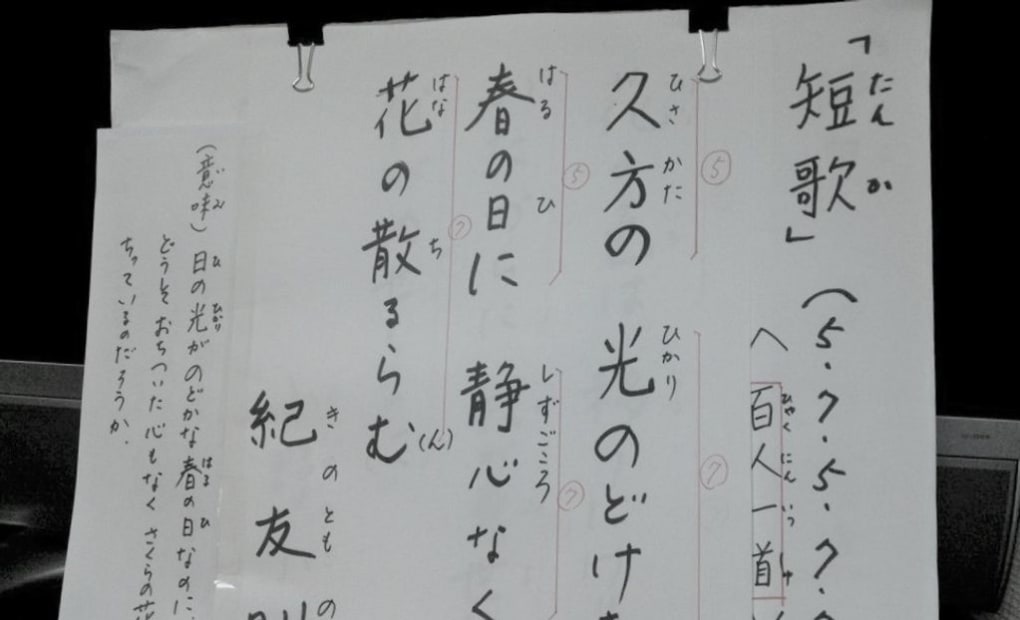 「短歌」(5.7.5.7.
たんか
百人一首
ひゃくにんいっしゅ
久方の 光のどけ
ひさ かた ひかり
⑤ ⑦
春の日に 静心なく
はる ひ しずごころ
⑤ ⑦
花の散るらむ(ん)
はな ち
⑦
紀友
きのともの
(意味)日の光がのどかな春の日なのに、
み ひ ひかり はる ひ
どうしておちついた心もなくさくらの花
ちっているのだろうか.